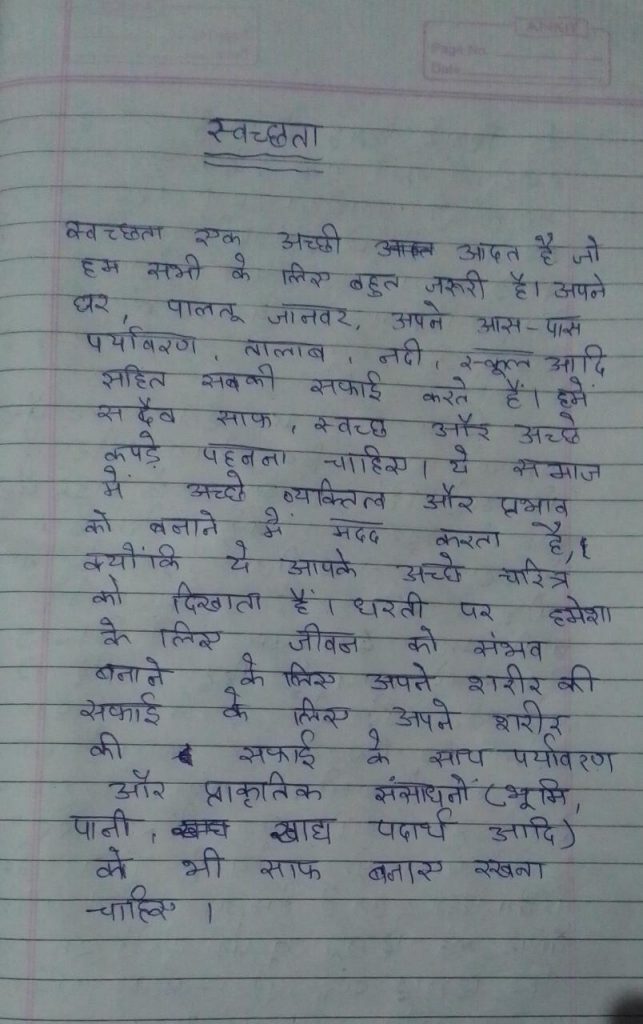 Page No.
Date
स्वच्छता
स्वच्छता एक अच्छी आदत है जो
हम सभी के लिए बहुत जरूरी है। अपने
घर, पालतू जानवर, अपने आस-पास
पर्यावरण, तालाब, नदी, स्कूल आदि
सहित सबकी सफाई करते हैं। हमें
सदैव साफ, स्वच्छ और अच्छे
कपड़े पहनना चाहिए। ये समाज
में अच्छे व्यक्तित्व और प्रभाव
को बनाने में मदद करता है,
क्योंकि ये आपके अच्छे चरित्र
को दिखाता हैं। धरती पर हमेशा
के लिए जीवन को संभव
बनाने के लिए अपने शरीर की
सफाई के लिए अपने शरीर
की सफाई के साथ पर्यावरण
और प्राकृतिक संसाधनों (भूमि,
पानी, खाद्य पदार्थ आदि)
को भी साफ बनाए रखना
चाहिए।